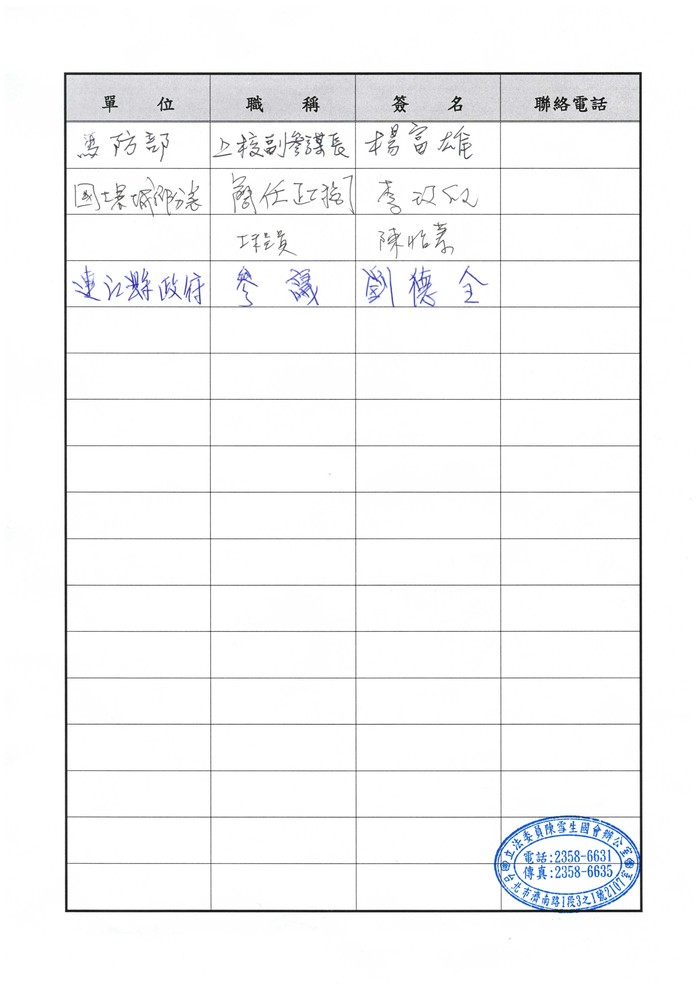 單位 職稱 簽名 聯絡電話
馬防部 上校副參謀長 楊富雄
簡任正工程司 李
工程員 陳怡
連江縣政府 參議 劉德全
立法委員陳雪生國會辦公室
電話:2358-6631
傳真:2358-6635
台北市濟南路1段3之1號2107室